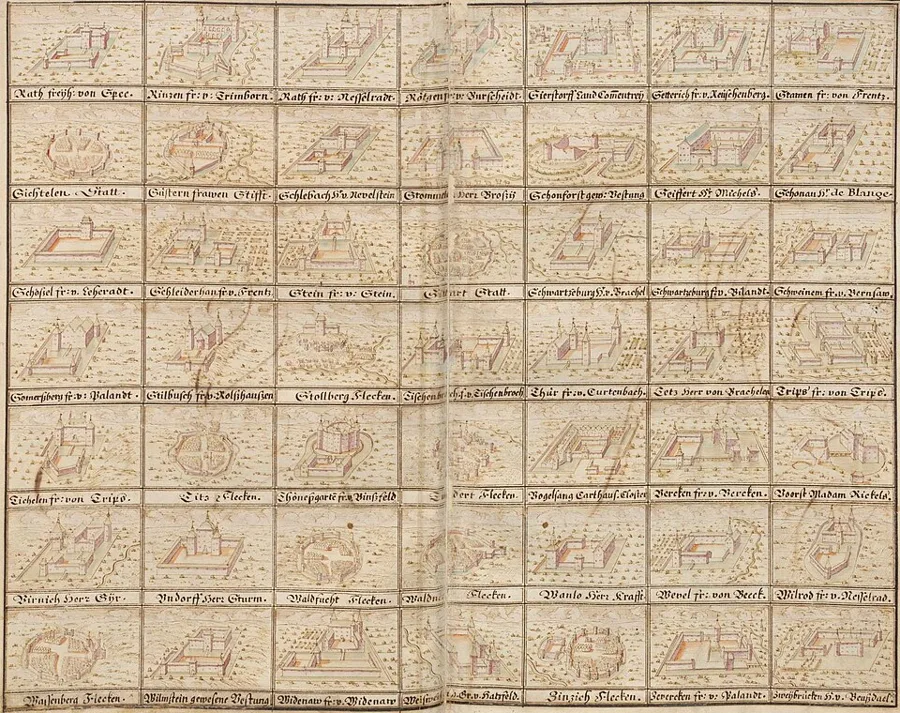 Rath freÿh: von Spee.
Rinzen fr: v: Trimborn.
Rath fr: v: Nesselradt.
v: Burscheidt.
Sierstorff Land Comentrey
Setterich fr: v. Reuschenberg.
Stamen fr: von Frentz.
Sichtelen Statt.
Süstern frawen Stifft.
Schlebach H: v. Nevelstein
Herr Broßij
Schonforst gem: Vestung
Seiffert Hr: Michels.
Schonau H: de Blange
Schösiel fr: v: Leheradt.
Schleiderhan fr. v. Frentz.
Stein fr: v: Stein.
Sittart Statt.
Schwartzeburg H. v. Brachel
Schwartzeburg fr. v. Bilandt.
Schweinem fr: v: Bernsaw.
Somersberg fr: v: Palandt.
Stilbusch fr. v. Rolshaußen
Stollberg Flecken.
v. Tischenbroch
Thür fr: v. Curtenbach.
Tetz Herr von Brachelen
Trips fr: von Trips.
Tichelen fr: von Trips.
Titz Flecken.
Thönesgarte fr: v. Binßfeld
Flecken.
Vogelsang Carthaus. Closter
Vercken fr: v. Vercken.
Voorst Madam Rickels.
Virnich Herr Syr.
Vndorff Herr Sturm.
Waldfucht Flecken.
Flecken.
Wanlo Herr Krafft.
Wevel fr: von Beeck.
Milrod fr: v. Nesselrad.
Waisenberg Flecken.
Wilmstein gewesene Vestung
Widenaw fr: v: Widenaw
Gr. v. Hatzfeld.
Zinzich Flecken.
Zevercken fr: v: Palandt.
Zweÿbrücken H. v.